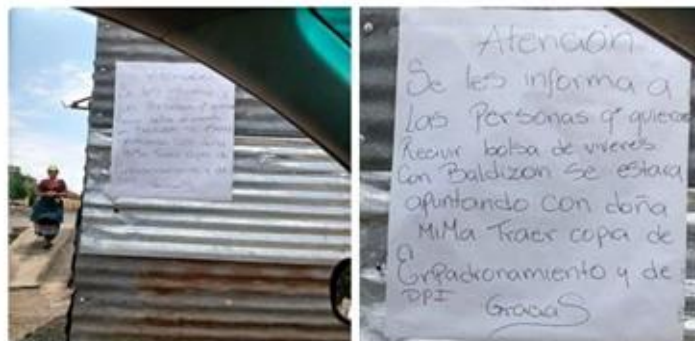 Atención
Se les informa a
Las Personas q' quieran
Recivir bolsa de viveres
Con Baldizon se estara
apuntando con doña
MiMa Traer copia de
Empadronamiento y de
DPI
Gracias